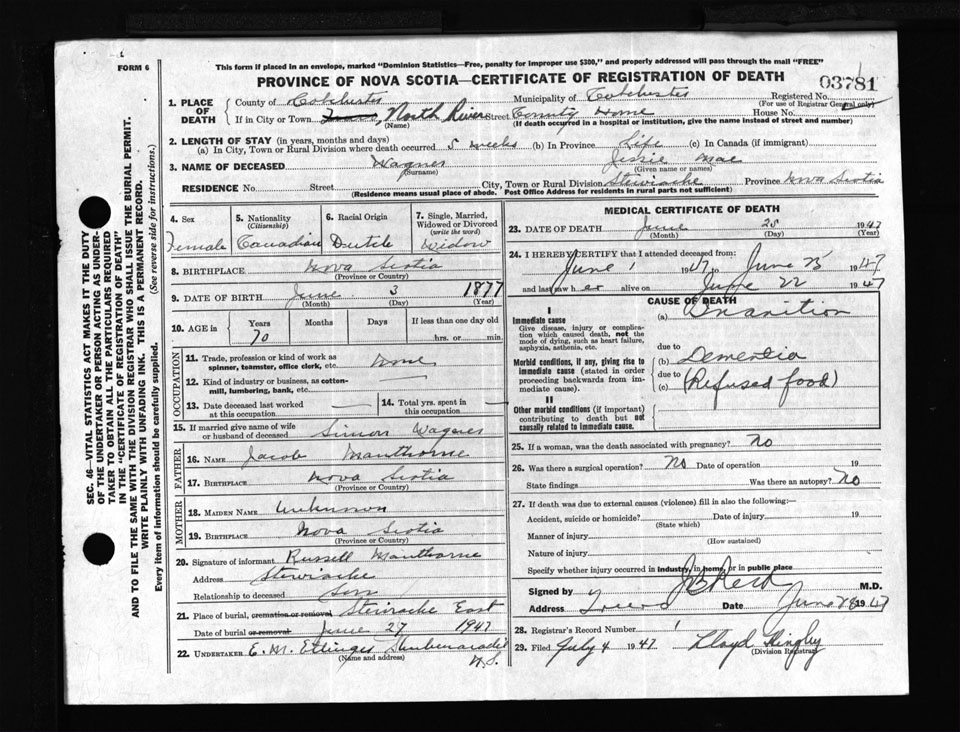 FORM 6
This form if placed in an envelope, marked "Dominion Statistics—Free, penalty for improper use $300," and properly addressed will pass through the mail "FREE"
PROVINCE OF NOVA SCOTIA—CERTIFICATE OF REGISTRATION OF DEATH
03781
1. PLACE OF DEATH
County of Colchester Municipality of Colchester Registered No.
(For use of Registrar General only)
If in City or Town Truro, North River Street County Home House No.
(Name) (If death occurred in a hospital or institution, give the name instead of street and number)
2. LENGTH OF STAY (in years, months and days)
(a) In City, Town or Rural Division where death occurred 5 weeks (b) In Province Life (c) In Canada (if immigrant)
3. NAME OF DECEASED Wagner Jessie Mae
(Surname) (Given name or names)
RESIDENCE No. Street City, Town or Rural Division Stewiacke Province Nova Scotia
(Residence means usual place of abode. Post Office Address for residents in rural parts not sufficient)
4. Sex
Female
5. Nationality
(Citizenship)
Canadian
6. Racial Origin
Dutch
7. Single, Married, Widowed or Divorced
(write the word)
Widow
8. BIRTHPLACE Nova Scotia
(Province or Country)
9. DATE OF BIRTH June 3 1877
(Month) (Day) (Year)
10. AGE in Years Months Days If less than one day old
70 hrs. or min.
OCCUPATION
11. Trade, profession or kind of work as
spinner, teamster, office clerk, etc. None
12. Kind of industry or business, as cotton-
mill, lumbering, bank, etc.
13. Date deceased last worked
at this occupation
14. Total yrs. spent in
this occupation
15. If married give name of wife
or husband of deceased Simon Wagner
FATHER
16. NAME Jacob Manthorne
17. BIRTHPLACE Nova Scotia
(Province or Country)
MOTHER
18. MAIDEN NAME Unknown
19. BIRTHPLACE Nova Scotia
(Province or Country)
20. Signature of informant Russell Manthorne
Address Stewiacke
Relationship to deceased Son
21. Place of burial, cremation or removal Stewiacke East
Date of burial or removal June 27 1947
22. UNDERTAKER E. M. Ettinger Shubenacadie
(Name and address) N.S.
MEDICAL CERTIFICATE OF DEATH
23. DATE OF DEATH June 25 1947
(Month) (Day) (Year)
24. I HEREBY CERTIFY that I attended deceased from:
June 1 1947 to June 25 1947
and last saw her alive on June 22 1947
CAUSE OF DEATH
I
Immediate cause
Give disease, injury or complica-
tion which caused death, not the
mode of dying, such as heart failure,
asphyxia, asthenia, etc.
(a) Inanition
due to
Morbid conditions, if any, giving rise to
immediate cause (stated in order
proceeding backwards from im-
mediate cause).
(b) Dementia
due to
(c) (Refused food)
II
Other morbid conditions (if important)
contributing to death but not
causally related to immediate cause.
25. If a woman, was the death associated with pregnancy? No
26. Was there a surgical operation? No Date of operation 19
State findings Was there an autopsy? No
27. If death was due to external causes (violence) fill in also the following:—
Accident, suicide or homicide? Date of injury 19
(State which)
Manner of injury
(How sustained)
Nature of injury
Specify whether injury occurred in industry, in home, or in public place
Signed by J B Reid M.D.
Address Truro Date June 28 1947
28. Registrar's Record Number 1
29. Filed July 4 1947 Lloyd
(Division Registrar)
SEC. 46—VITAL STATISTICS ACT MAKES IT THE DUTY
OF THE UNDERTAKER OR PERSON ACTING AS UNDER-
TAKER TO OBTAIN ALL THE PARTICULARS REQUIRED
IN THE "CERTIFICATE OF REGISTRATION OF DEATH"
AND TO FILE THE SAME WITH THE DIVISION REGISTRAR WHO SHALL ISSUE THE BURIAL PERMIT.
WRITE PLAINLY WITH UNFADING INK. THIS IS A PERMANENT RECORD.
Every item of information should be carefully supplied. (See reverse side for instructions.)